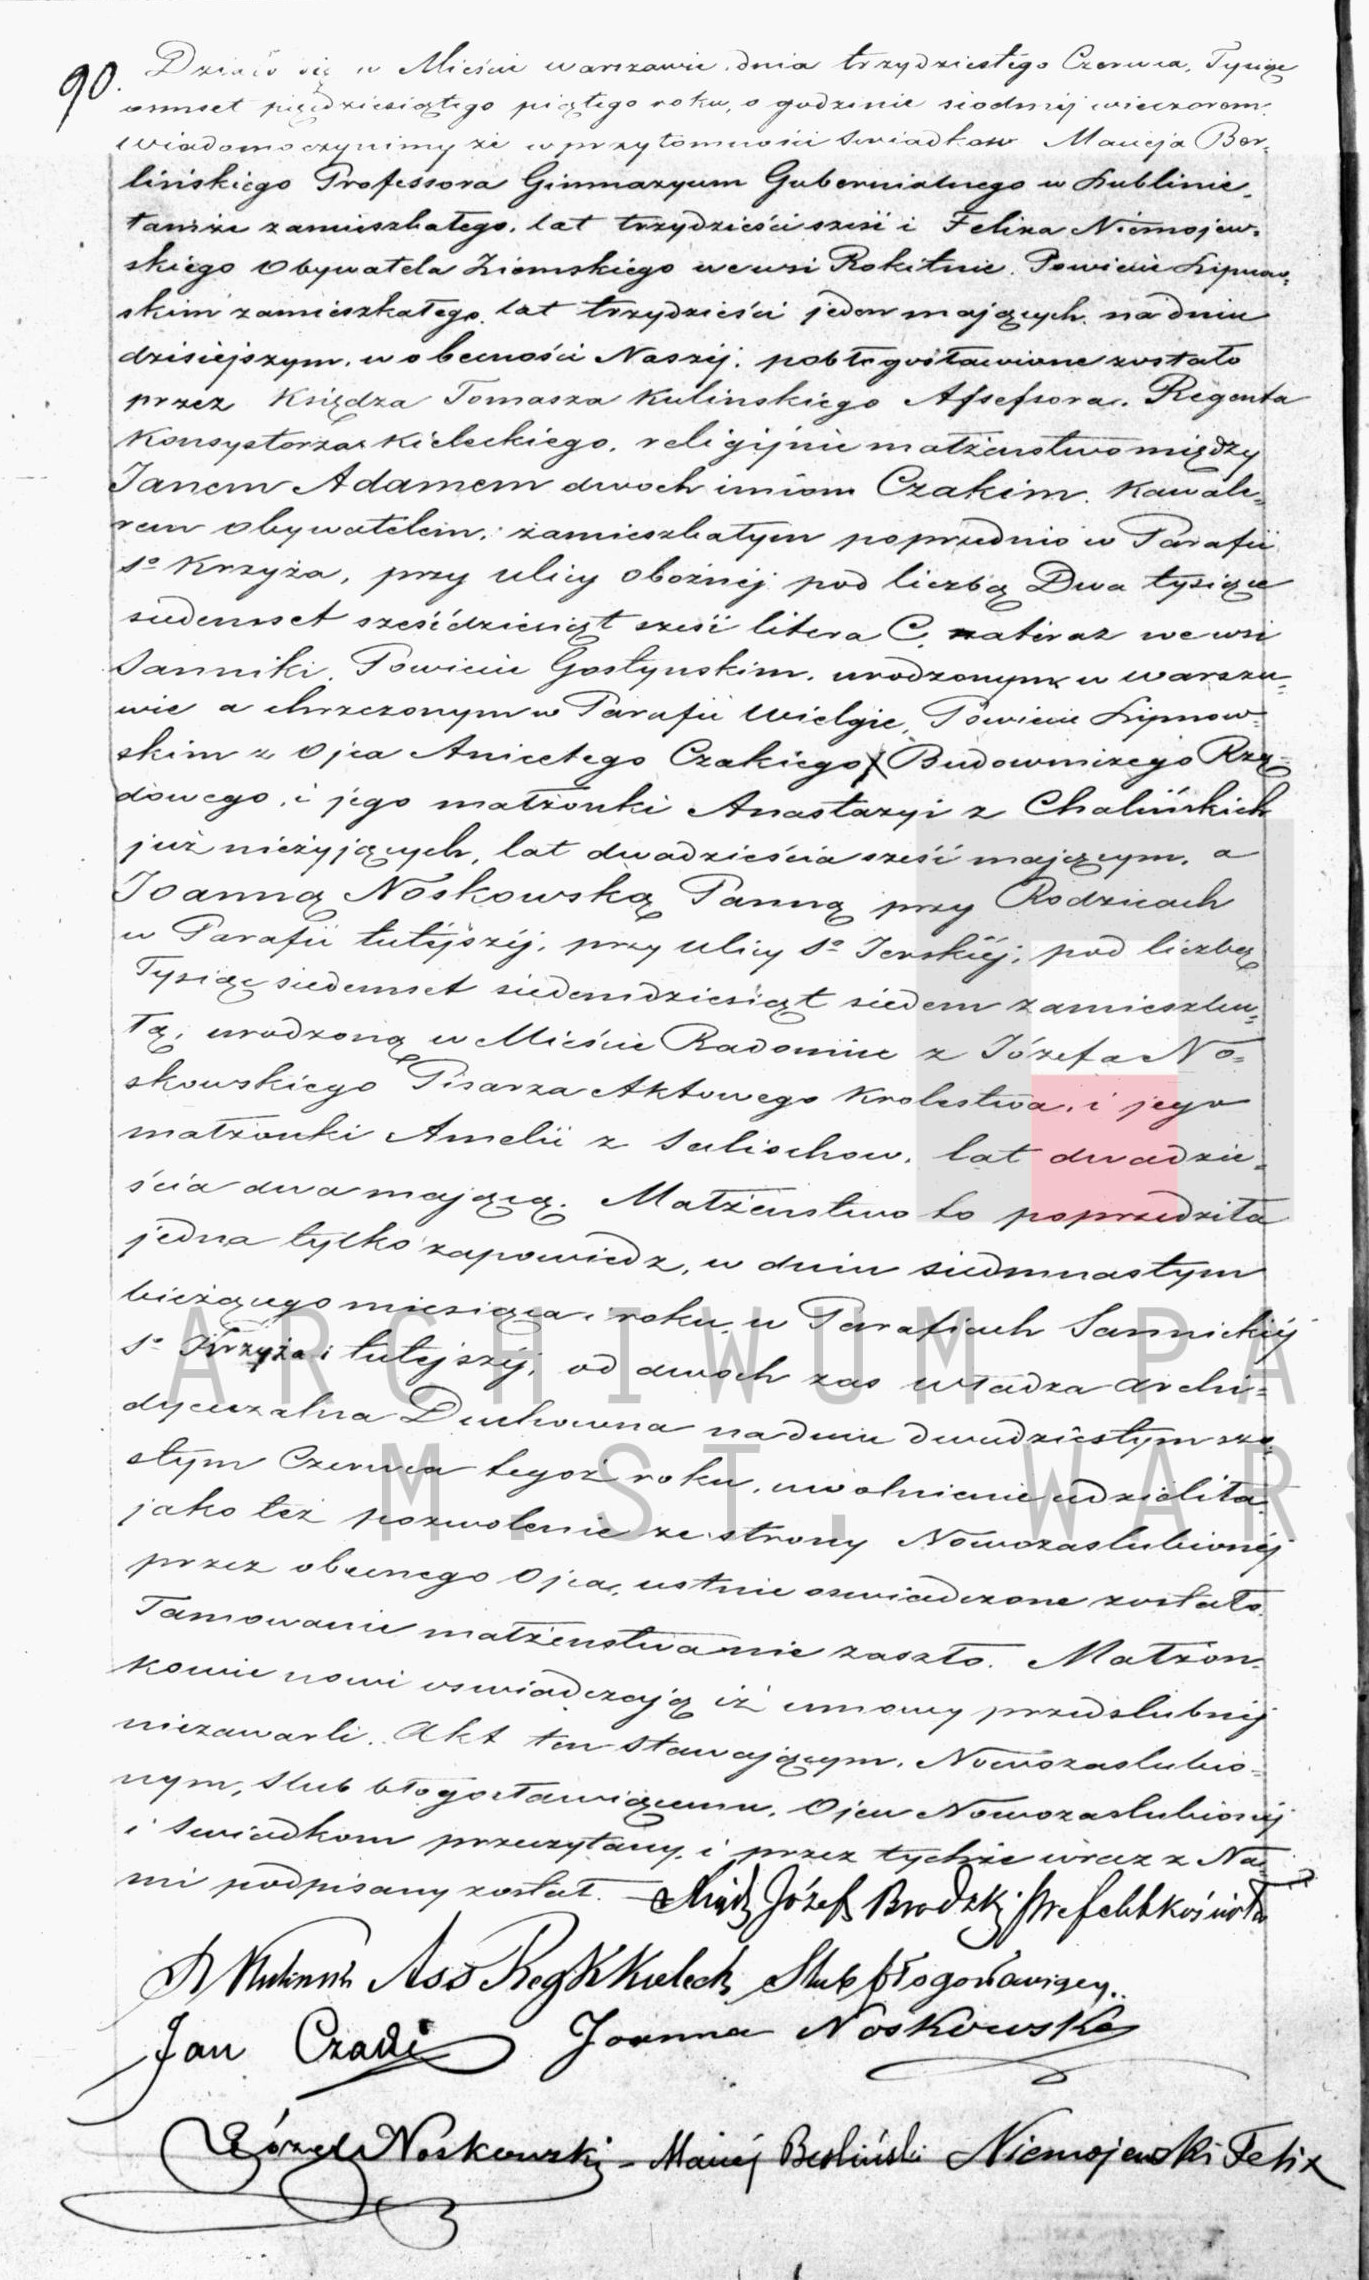 90.
Działo się w Mieście warszawie dnia trzydziestego Czerwca, Tysiąc
ośmset pięćdziesiątego piątego roku, o godzinie siodmej wieczorem.
Wiadomo czynimy że w przytomności Swiadkow Macieja Ber-
lińskiego Professora Gimnazyum Gubernialnego w Lublinie,
tamże zamieszkałego, lat trzydzieści sześć i Felixa Niemojew-
skiego Obywatela Ziemskiego we wsi Rokitnie, Powiecie Lipnow-
skim zamieszkałego, lat trzydzieści jeden mających, na dniu
dzisiejszym, w obecności Naszej, pobłogosławione zostało
przez Księdza Tomasza Kulinskiego Assessora, Regenta
Konsystorza Kieleckiego, religijnie małżeństwo między
Janem Adamem dwoch imion Czakim, Kawale-
rem Obywatelem, zamieszkałym poprzednio w Parafii
So Krzyża, przy ulicy Oboźnej pod liczbą Dwa tysiące
siedemset sześćdziesiąt sześć litera C, a teraz we wsi
Sanniki, Powiecie Gostynskim, urodzonym w warsza-
wie a chrzczonym w Parafii Wielgie, Powiecie Lipnow-
skim z Ojca Anicetego Czakiego Budowniczego Rzą-
dowego, i jego małżonki Anastazyi z Chalińskich
już nieżyjących, lat dwadzieścia sześć mającym, a
Joanną Noskowską Panną przy Rodzicach
w Parafii tutejszej, przy ulicy So Jerskiej, pod liczbą
Tysiąc siedemset siedemdziesiąt siedem zamieszka-
łą, urodzoną w Mieście Radomiu z Józefa No-
skowskiego Pisarza Aktowego Krolestwa, i jego
małżonki Amelii z Salischow, lat dwadzie-
ścia dwa mającą. Małżeństwo to poprzedziła
jedna tylko zapowiedz, w dniu siedmnastym
bieżącego miesiąca i roku, w Parafiach Sannickiej
So Krzyża i tutejszej, od dwoch zas władza Archi-
dyecezalna Duchowna na dniu dwudziestym szo-
stym Czerwca tegoż roku, uwolnienie udzieliła,
jako też pozwolenie ze strony Nowozaslubionej
przez obecnego Ojca, ustnie oswiadczone zostało.
Tamowanie małżenstwa nie zaszło. Małżon-
kowie nowi oswiadczają iż umowy przedslubnej
niezawarli. Akt ten Stawającym, Nowozaslubio-
nym, Slub błogosławiącemu, Ojcu Nowozaslubionej
i Swiadkom przeczytany, i przez tychże wraz z Na-
mi podpisany został. Ksiądz Józef Brodzki
Ass Reg K Kieleck Slub błogosławiący.
Jan Czaki Joanna Noskowska
Józef Noskowski Maciej Berliński Niemojewski Felix
ARCHIWUM PA
M. ST. WARS